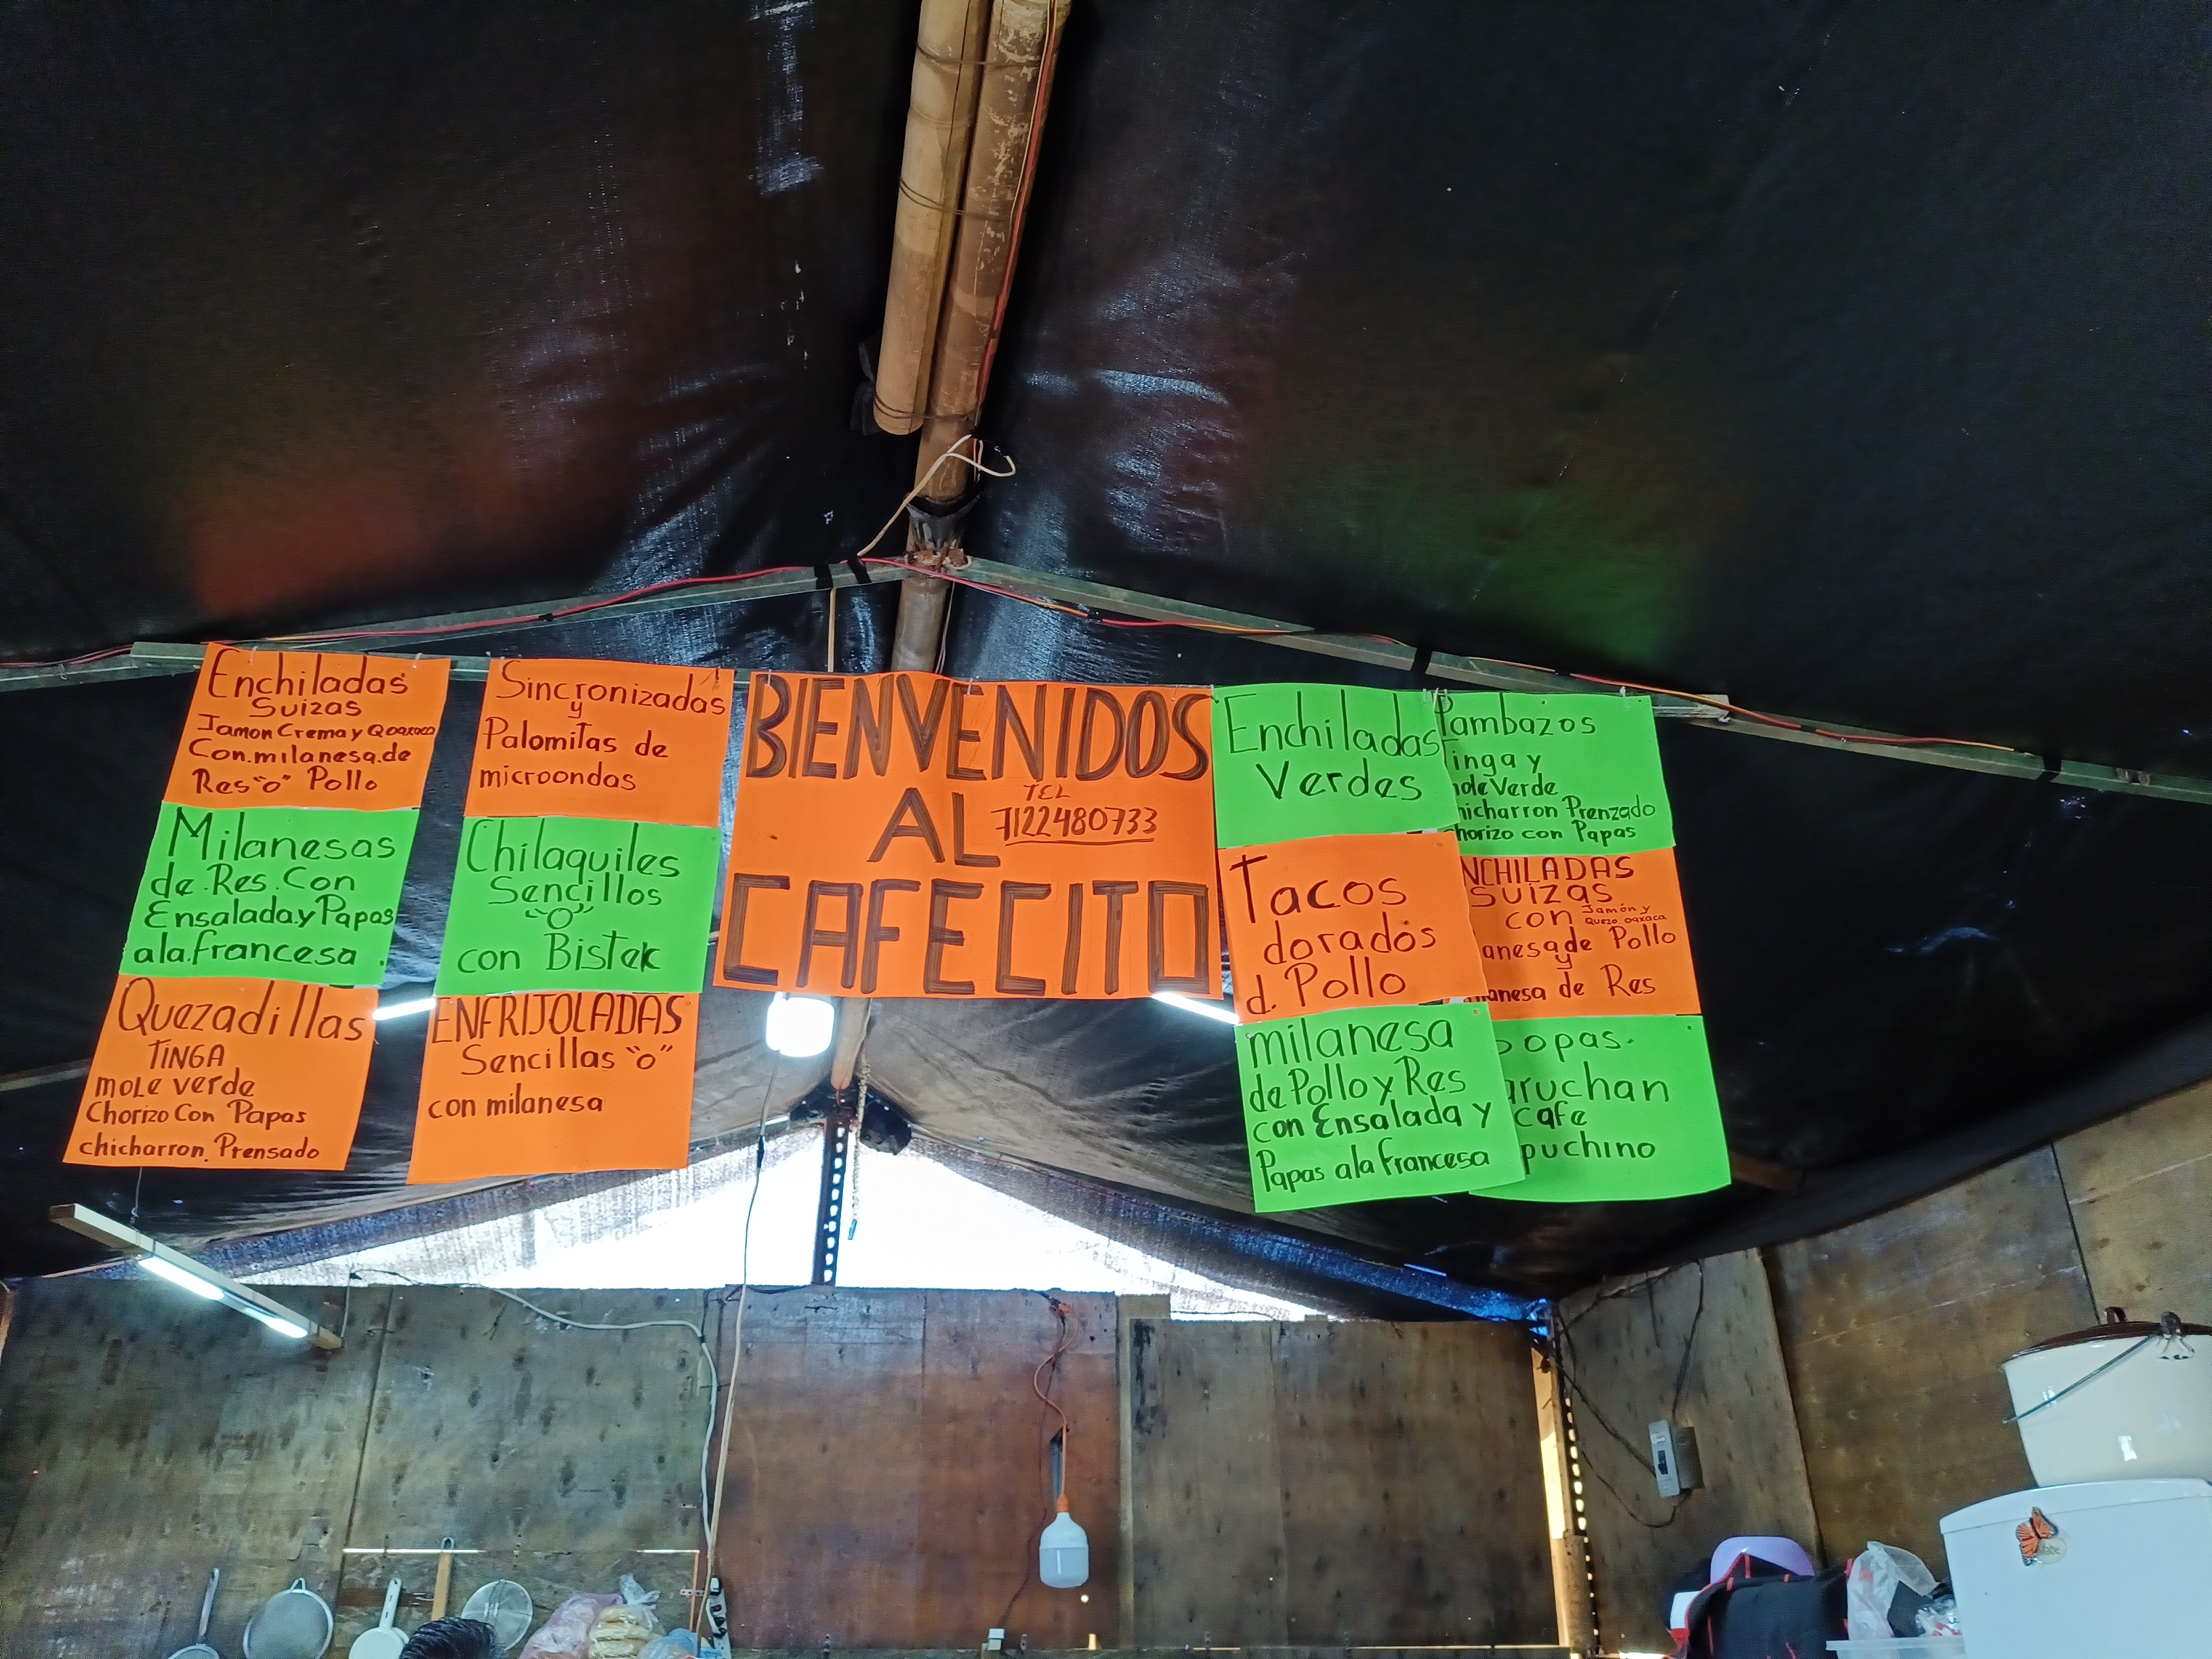 Enchiladas
Suizas
Jamon Crema y Qoaxaca
Con.milanesa.de
Res "o" Pollo
Milanesas
de.Res.Con
Ensalada.y Papas
ala.francesa.
Quezadillas
TINGA
mole verde
Chorizo Con Papas
chicharron. Prensado
Sincronizadas
y
Palomitas de
microondas
Chilaquiles
Sencillos
"O"
con Bistek
ENFRIJOLADAS
Sencillas "o"
con milanesa
BIENVENIDOS
AL
TEL
7122480733
CAFECITO
Enchiladas
Verdes
Tacos
dorados
d. Pollo
milanesa
de Pollo y Res
con Ensalada y
Papas ala francesa
Pambazos
inga y
ole Verde
hicharron Prenzado
chorizo con Papas
NCHILADAS
Suizas
con Jamón y
Quezo oaxaca
anesa de Pollo
y
anesa de Res
sopas.
aruchan
cafe
puchino